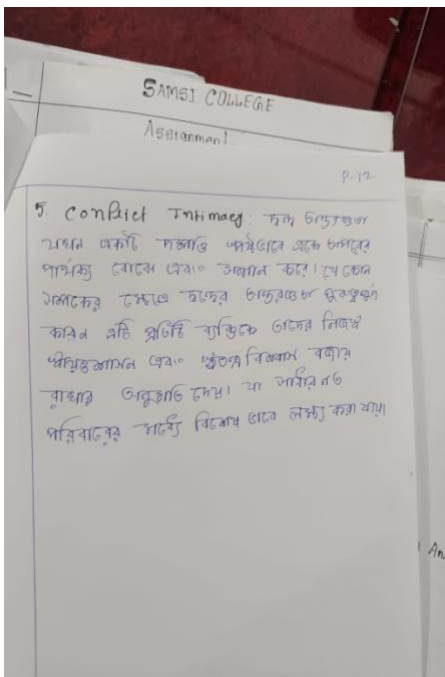 SAMSI COLLEGE
Assignment
P-12
5. Conflict Intimacy: দ্বন্দ্ব অন্তরঙ্গতা
যখন একটি দম্পতি স্পষ্টভাবে একে অপরের
পার্থক্য বোঝে এবং সম্মান করে। যে কোন
সম্পর্কের ক্ষেত্রে দ্বন্দ্বের অন্তরঙ্গতা গুরুত্বপূর্ণ
কারণ এটি প্রতিটি ব্যক্তিকে তাদের নিজস্ব
স্বায়ত্তশাসন এবং স্বতন্ত্র বিশ্বাস বজায়
রাখার অনুমতি দেয়। যা সাধারণত
পরিবারের মধ্যে বিশেষ ভাবে লক্ষ্য করা যায়।
An